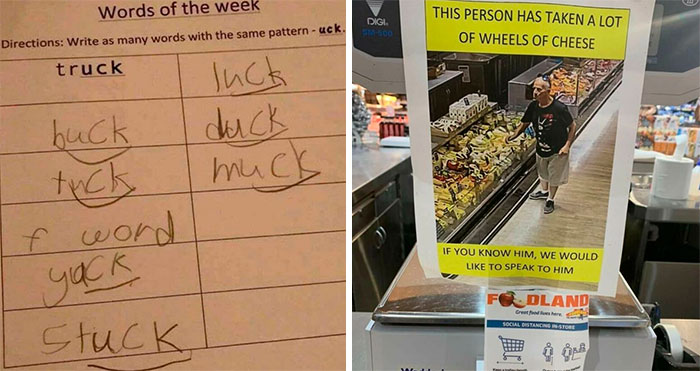 Words of the week
Directions: Write as many words with the same pattern - uck.
truck
luck
buck
duck
tuck
muck
f word
yuck
stuck
DIGI
SM-500
THIS PERSON HAS TAKEN A LOT
OF WHEELS OF CHEESE
IF YOU KNOW HIM, WE WOULD
LIKE TO SPEAK TO HIM
FOODLAND
Great food lives here.
SOCIAL DISTANCING IN-STORE